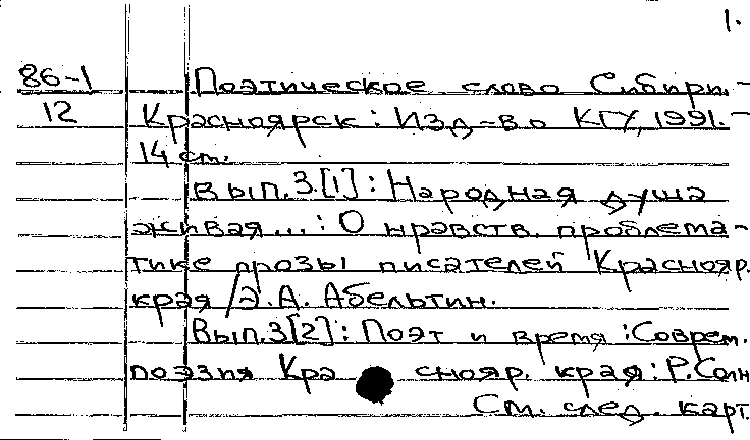 1.
86-1 Поэтическое слово Сибири.-
12 Красноярск: Изд-во КГУ, 1991.-
14 см.
Вып.3.[1]: Народная душа
живая...: О нравств. проблема-
тике прозы писателей Краснояр.
края /Э.А. Абельтин.
Вып.3[2]: Поэт и время :Соврем.
поэзия Кра сноляр. края: Р.Солн
См. след. карт.